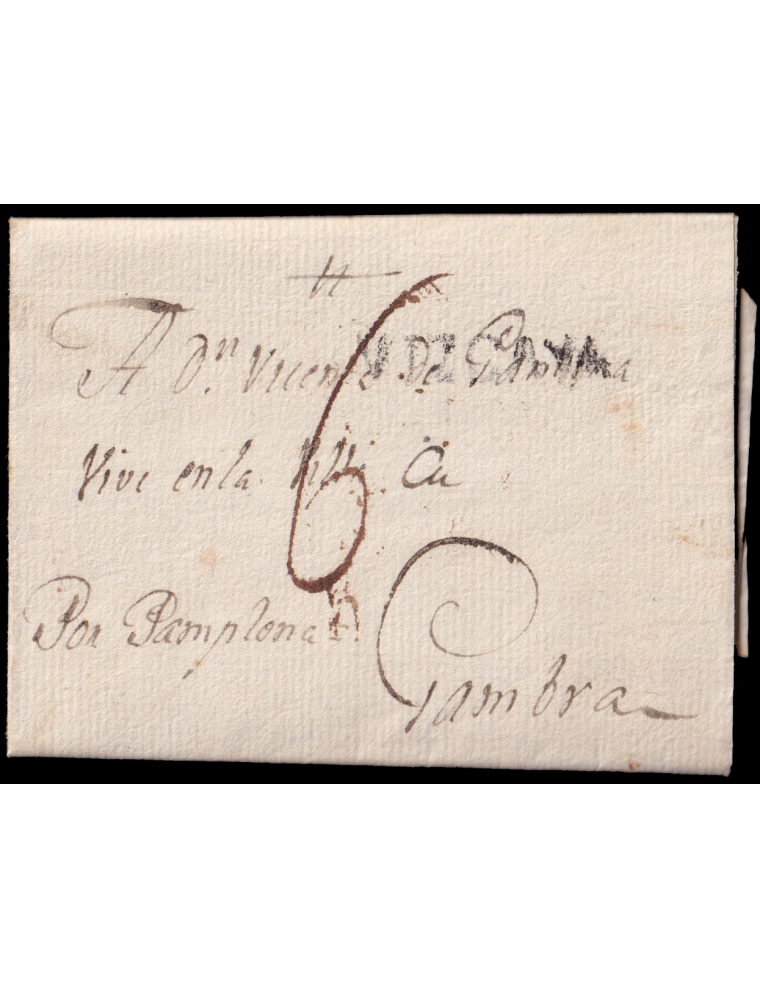 A Dn. Vicente De Gambra
Vive en la Villa
6
Por Pamplona
Gambra